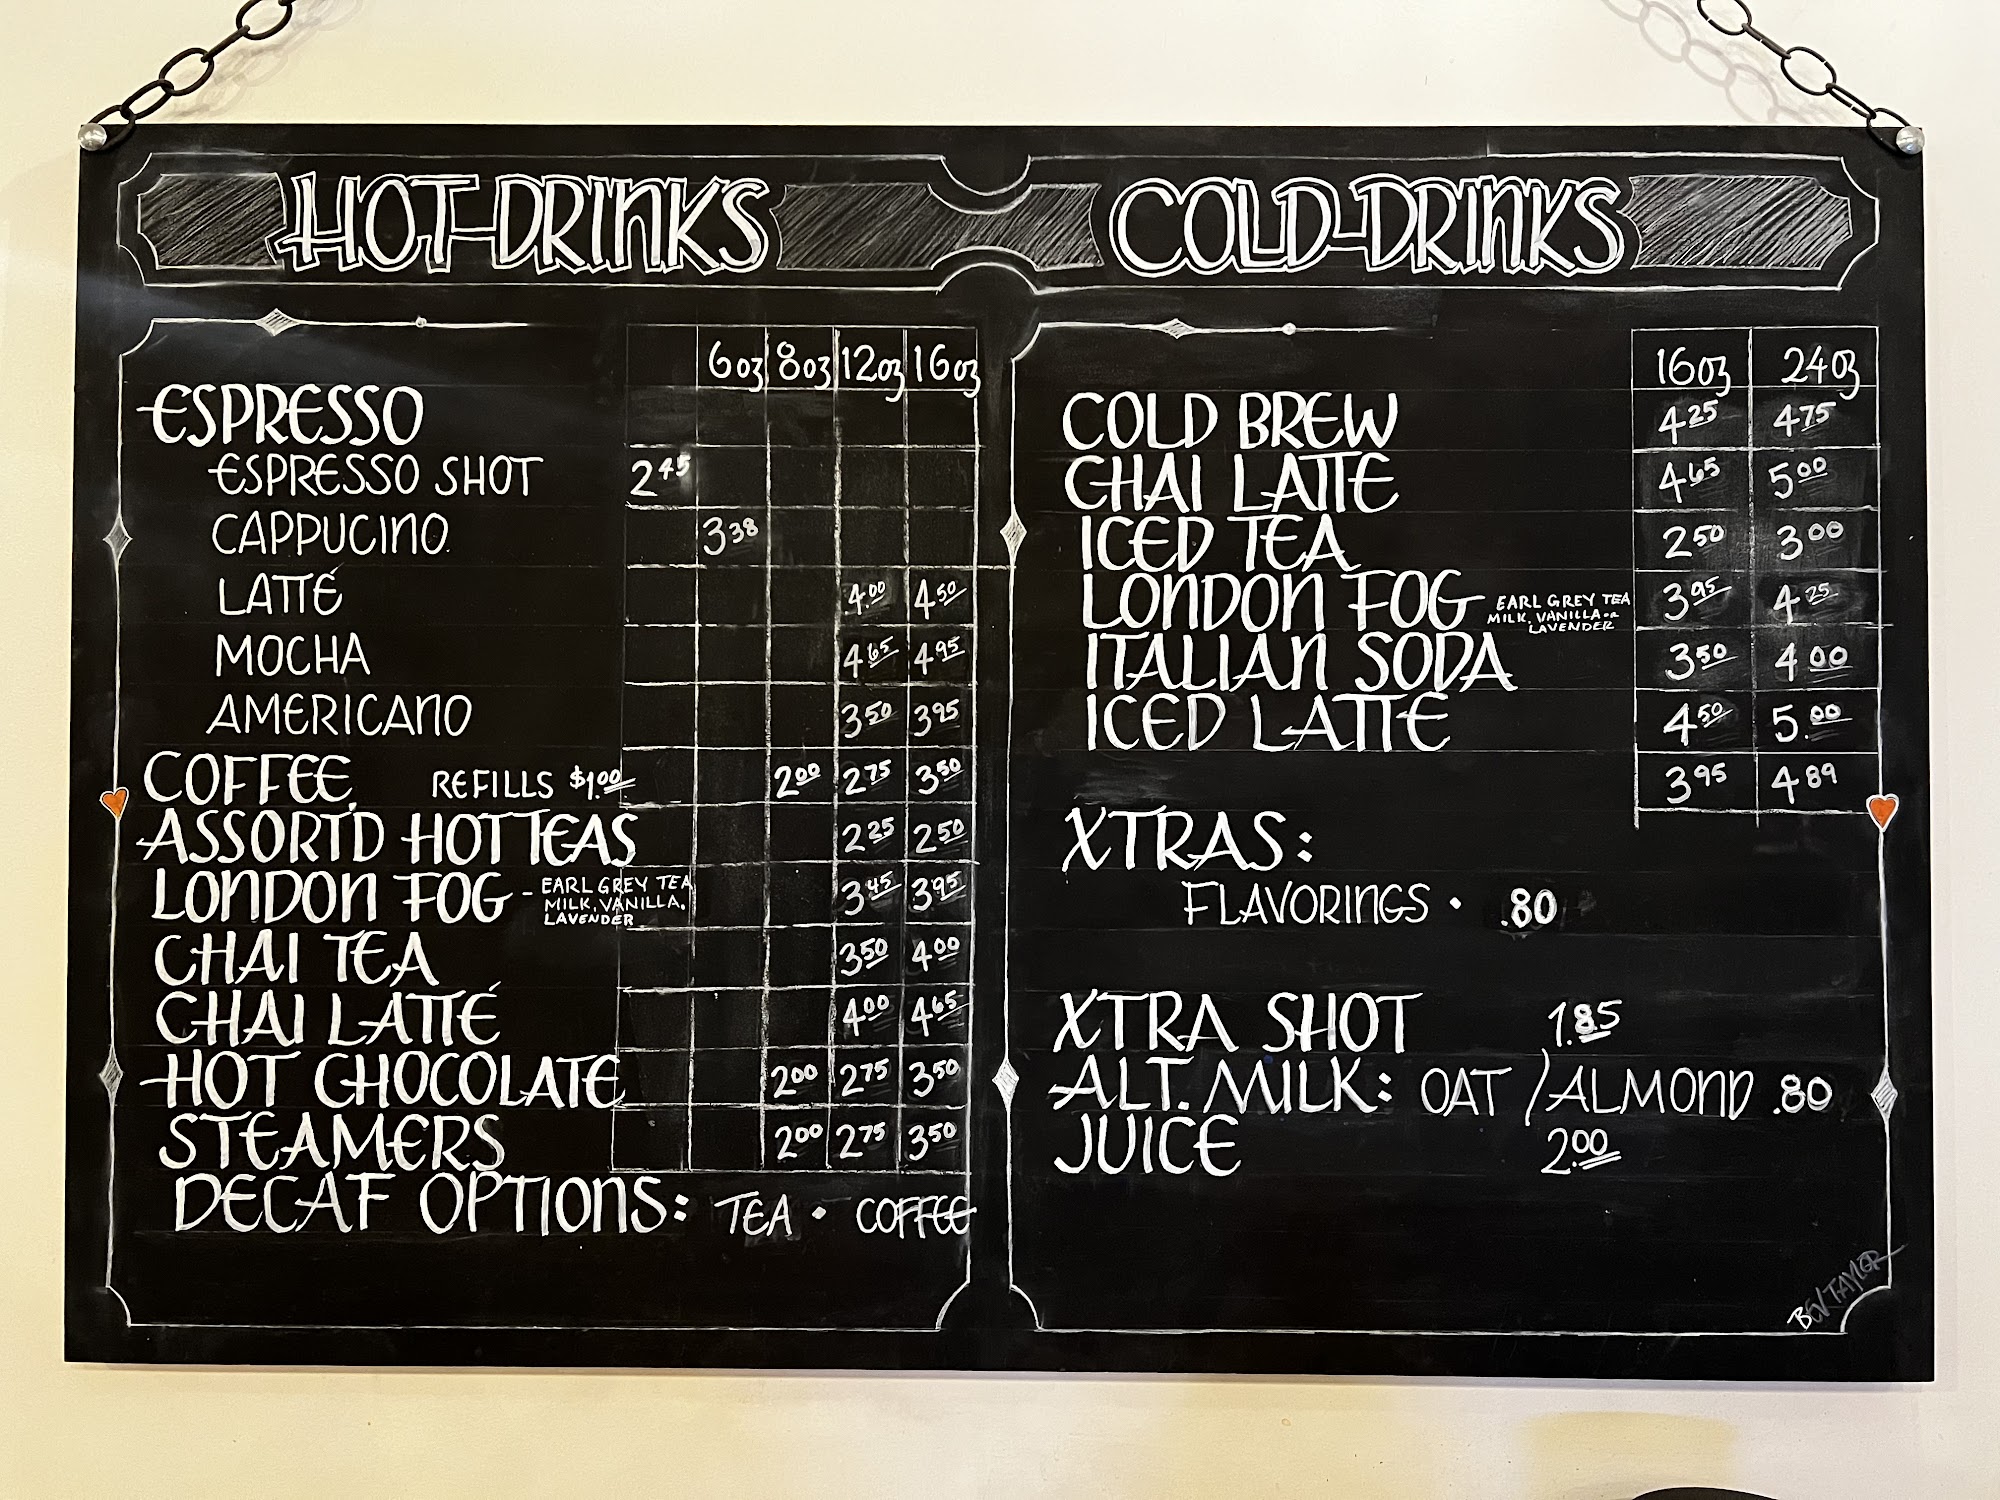 HOT DRINKS
6oz 8oz 12oz 16oz
ESPRESSO
ESPRESSO SHOT 2.45
CAPPUCINO 3.38
LATTÉ 4.00 4.50
MOCHA 4.65 4.95
AMERICANO 3.50 3.95
COFFEE REFILLS $1.00 2.00 2.75 3.50
ASSORT'D HOT TEAS 2.25 2.50
LONDON FOG - EARL GREY TEA 3.45 3.95
MILK, VANILLA,
LAVENDER
CHAI TEA 3.50 4.00
CHAI LATTÉ 4.00 4.65
HOT CHOCOLATE 2.00 2.75 3.50
STEAMERS 2.00 2.75 3.50
DECAF OPTIONS: TEA • COFFEE
COLD DRINKS
16oz 24oz
COLD BREW 4.25 4.75
CHAI LATTE 4.65 5.00
ICED TEA 2.50 3.00
LONDON FOG EARL GREY TEA 3.95 4.25
MILK, VANILLA or
LAVENDER
ITALIAN SODA 3.50 4.00
ICED LATTE 4.50 5.00
3.95 4.89
XTRAS:
FLAVORINGS • .80
XTRA SHOT 1.85
ALT. MILK: OAT / ALMOND .80
JUICE 2.00
BEV TAYLOR